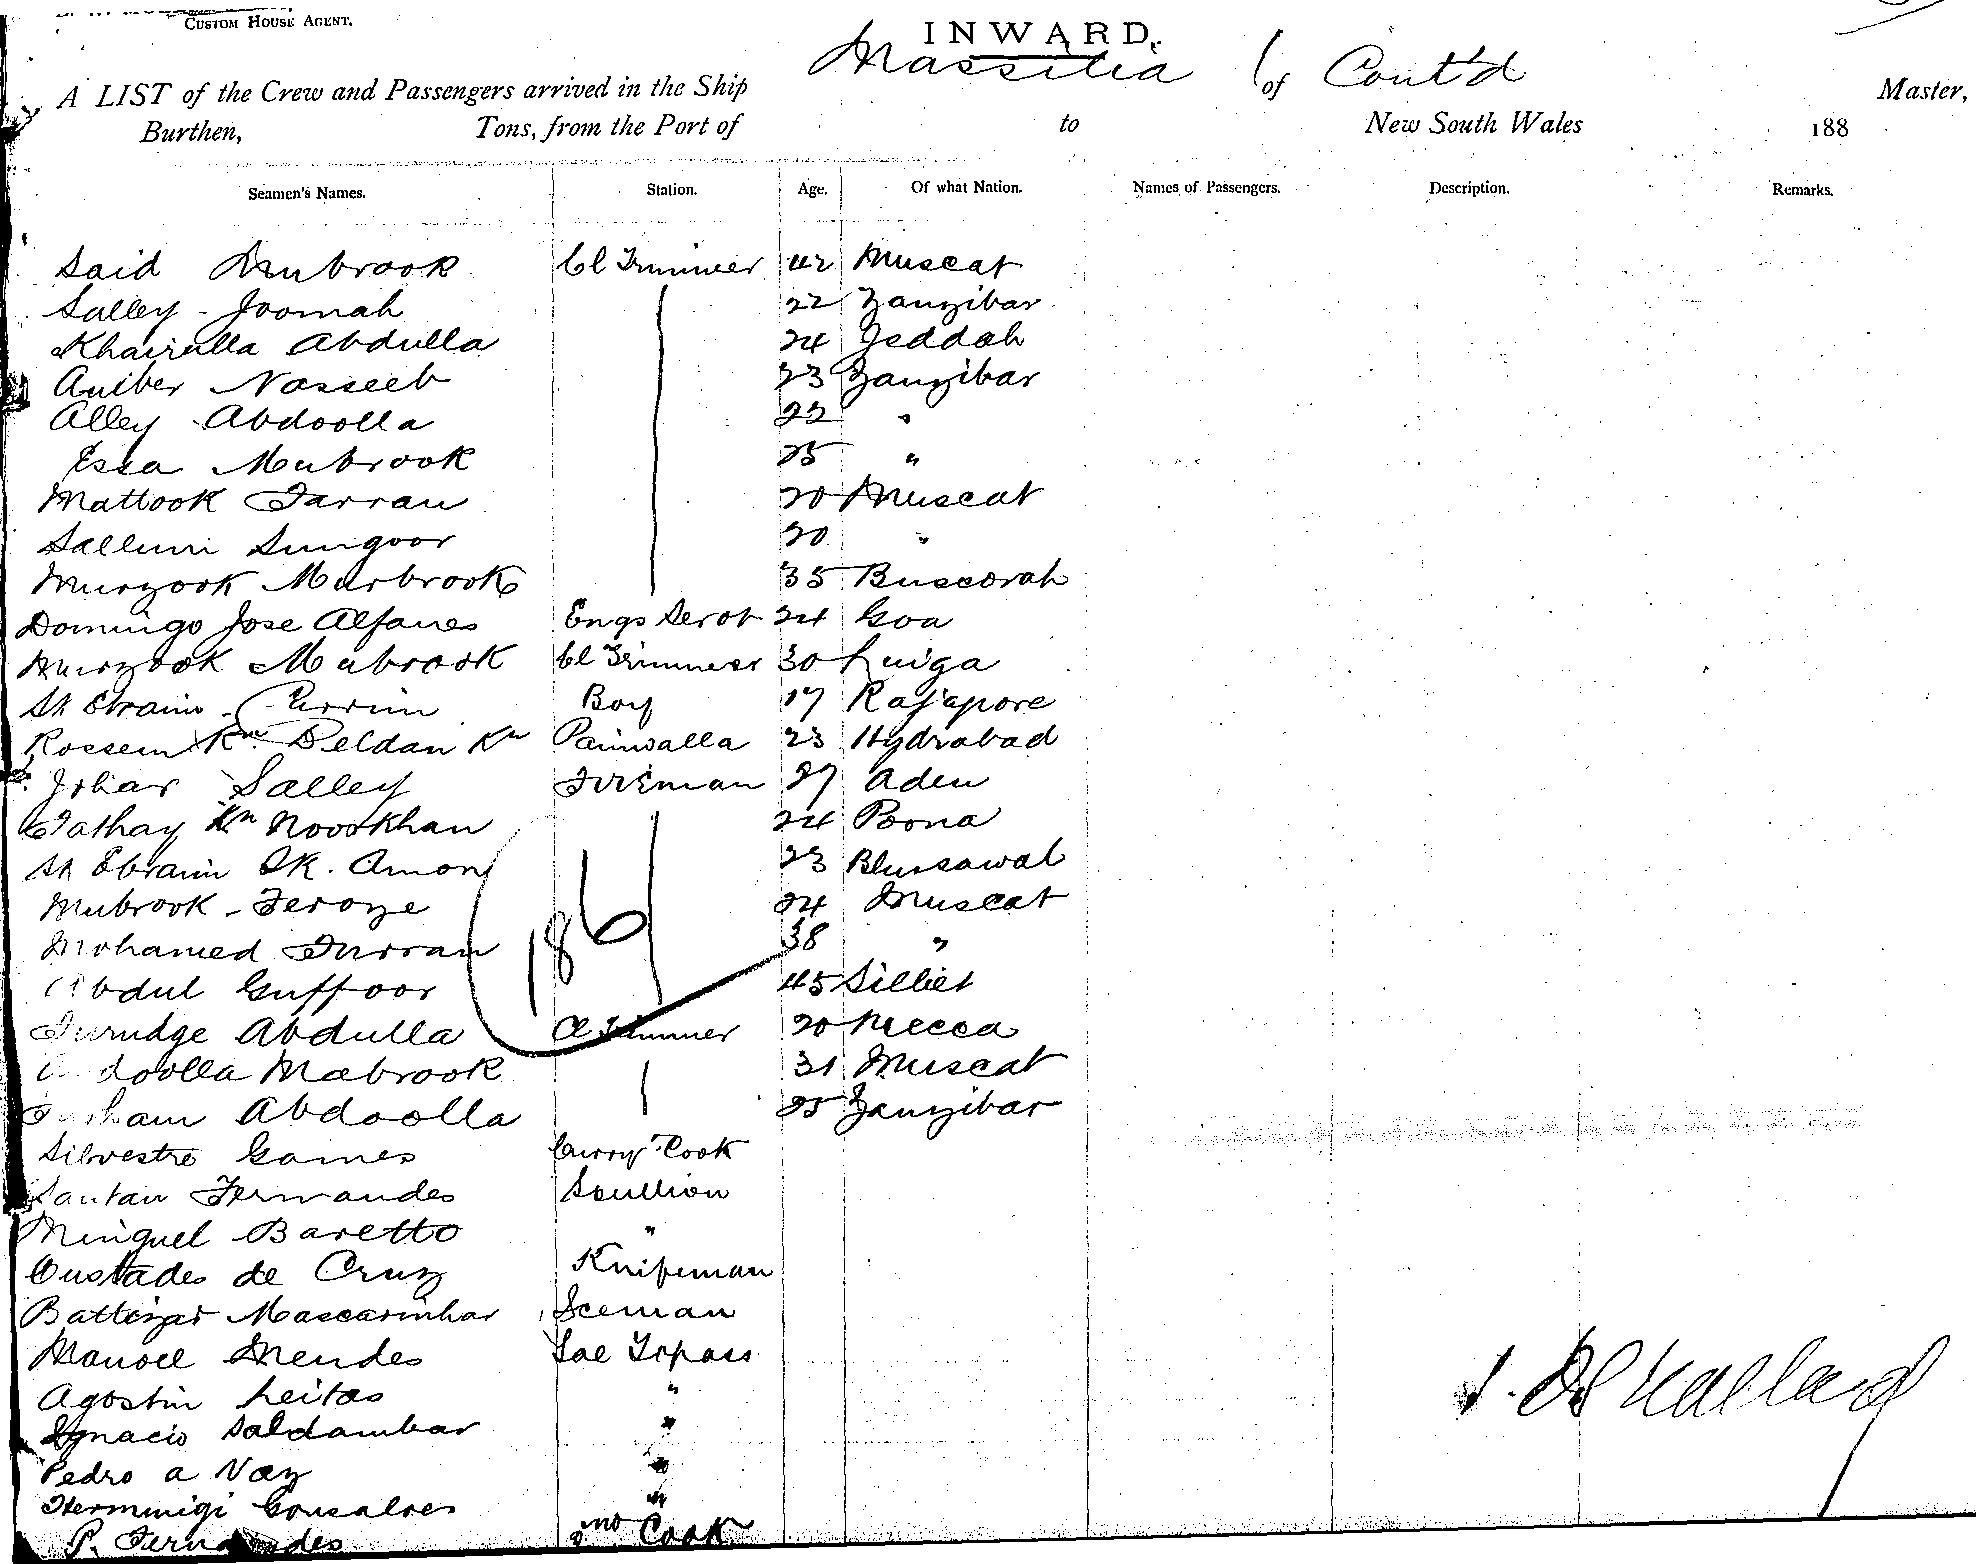 CUSTOM HOUSE AGENT.
INWARD.
A LIST of the Crew and Passengers arrived in the Ship Massilia of Cont'd Master,
Burthen, Tons, from the Port of to New South Wales 188
Seamen's Names. Station. Age. Of what Nation. Names of Passengers. Description. Remarks.
Said Mubrook Cl Trimmer 42 Muscat
Salley Joomah 22 Zanzibar
Khairulla Abdulla 24 Jeddah
Amber Nasseeb 23 Zanzibar
Alley Abdoolla 22 "
Essa Mubrook 25 "
Mattook Farran 20 Muscat
Sallum Sungoor 20 "
Murzook Marbrook 35 Buscorah
Domingo Jose Alfanes Engs Servt 24 Goa
Murzook Mabrook Cl Trimmer 30 Luiga
Sk Ebraim Currim Boy 17 Rajapore
Rossem Kn Deldan Kn Paniwalla 23 Hydrabad
Johar Salley Fireman 27 Aden
Fathay Kn Noorkhan 24 Poona
Sk Ebraim Sk. Amon 23 Bhusawal
Mubrook Feroze 24 Muscat
186
Mohamed Furran 38 "
Abdul Guffoor 45 Silhet
Furudge Abdulla Cl Trimmer 20 Mecca
doolla Mabrook 31 Muscat
Farham Abdoolla 25 Zanzibar
Silvestre Gomes Curry Cook
Santan Fernandes Scullion
Minguel Baretto "
Custades de Cruz Knifeman
Battizar Mascarinhar Iceman
Manoel Mendes Sal Topass
Agostin Leitao "
Ignacio Saldambar "
Pedro a Vaz "
Herminigi Gonsalves "
P. Fernandes 2nd Cook